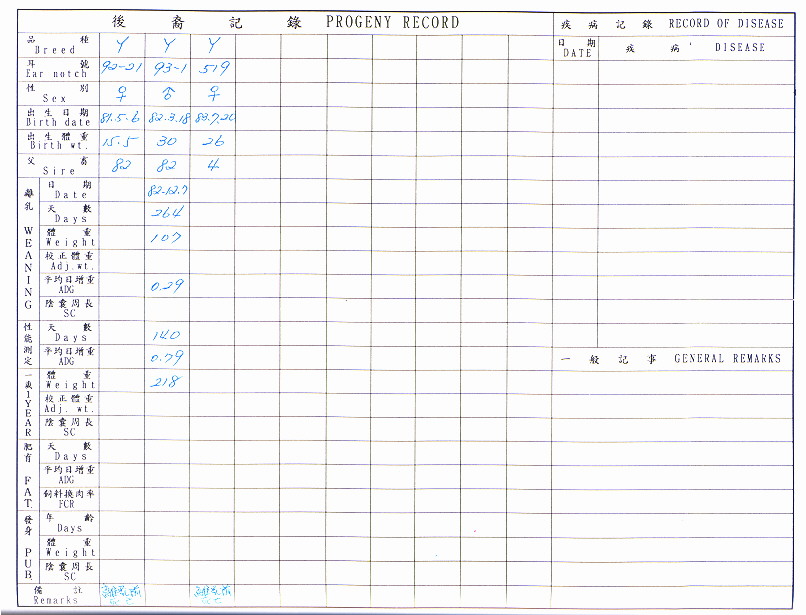 後 裔 記 錄 PROGENY RECORD
品 種 Breed Y Y Y
耳 號 Ear notch 92-21 93-1 519
性 別 Sex ♀ ♂ ♀
出生日期 Birth date 81.5.6 82.3.18 83.7.20
出生體重 Birth wt. 15.5 30 26
父 畜 Sire 82 82 4
離乳 WEANING
日 期 Date 82.12.7
天 數 Days 264
體 重 Weight 107
校正體重 Adj.wt.
平均日增重 ADG 0.29
陰囊周長 SC
性能測定
天 數 Days 140
平均日增重 ADG 0.79
一歲 1YEAR
體 重 Weight 218
校正體重 Adj. wt.
陰囊周長 SC
肥育 FAT.
天 數 Days
平均日增重 ADG
飼料換肉率 FCR
發身 PUB.
年 齡 Days
體 重 Weight
陰囊周長 SC
備 註 Remarks 離乳前 離乳前
疾 病 記 錄 RECORD OF DISEASE
日 期 DATE 疾 病 DISEASE
一 般 記 事 GENERAL REMARKS